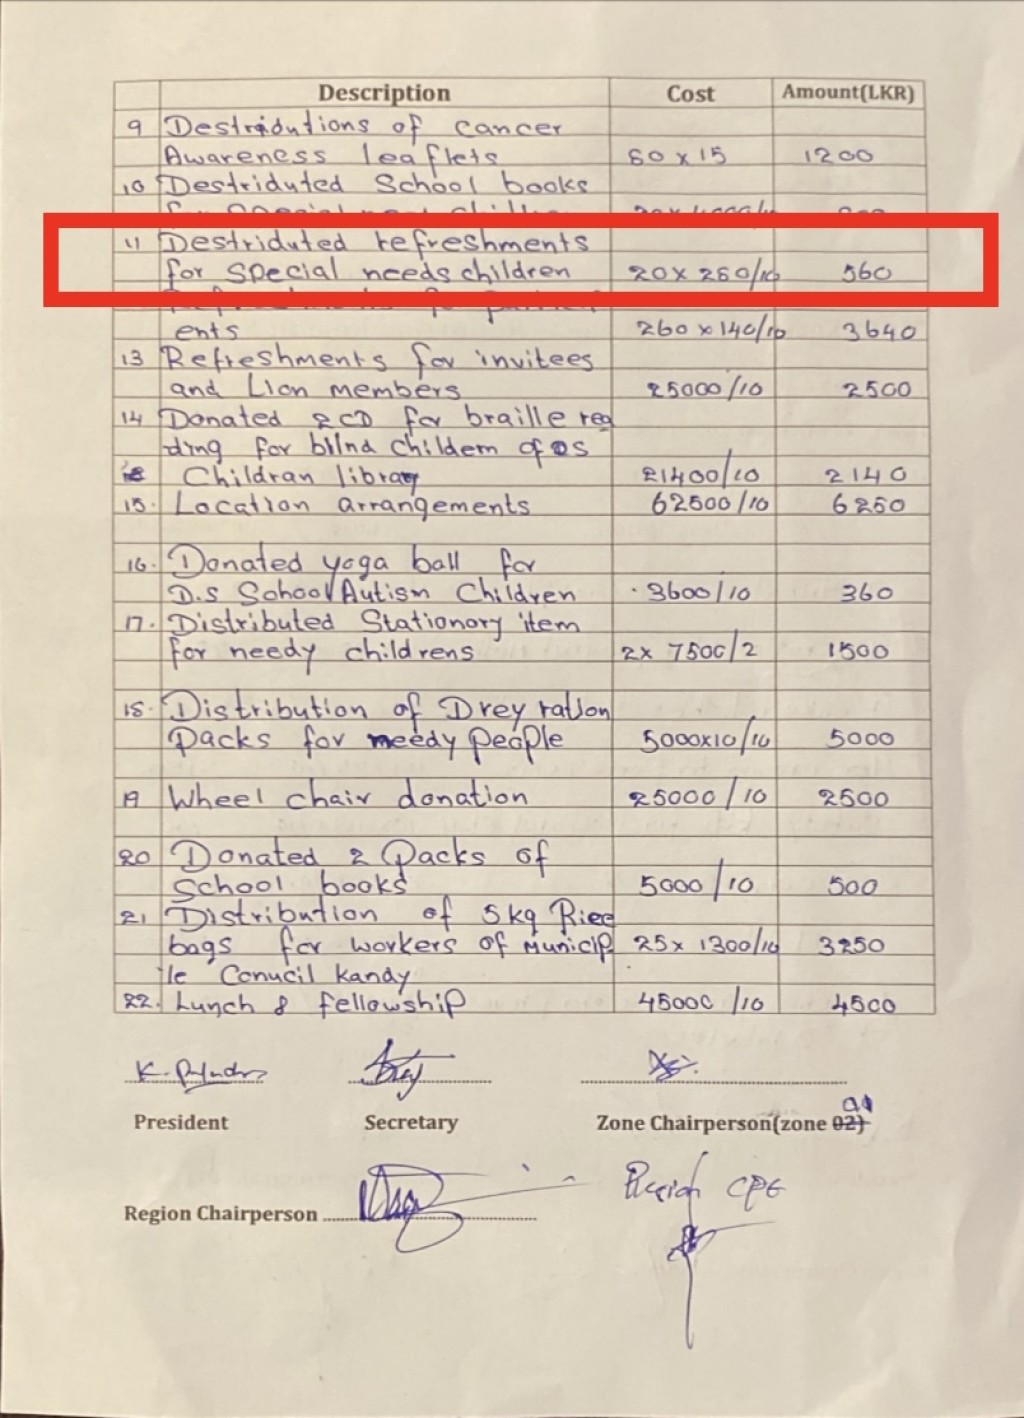 Description Cost Amount(LKR)
9 Destridutions of cancer
Awareness leaflets 80 x 15 1200
10 Destriduted School books
11 Destriduted refreshments
for special needs children 20 x 280/10 560
ents 260 x 140/10 3640
13 Refreshments for invitees
and Lion members 25000/10 2500
14 Donated 2 CD for braille rea
ding for blind childern of DS
Children library 21400/10 2140
15. Location arrangements 62500/10 6250
16. Donated yoga ball for
D.S School Autism Children 3600/10 360
17. Distributed Stationory item
for needy childrens 2x 7500/2 1500
18. Distribution of Drey ration
packs for needy people 5000x10/10 5000
19 Wheel chair donation 25000/10 2500
20 Donated 2 Packs of
School books 5000/10 500
21, Distribution of 5kg Rice
bags for workers of Municip 25x 1300/10 3250
le Conucil Kandy
22. Lunch & fellowship 45000/10 4500
President Secretary Zone Chairperson(zone 02)
Region Chairperson
Region